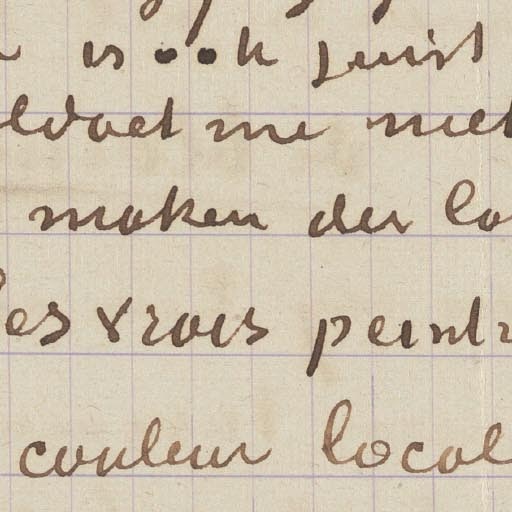 is ook juist
voldoet me niet
maken der lo
les vrais peintr
couleur local